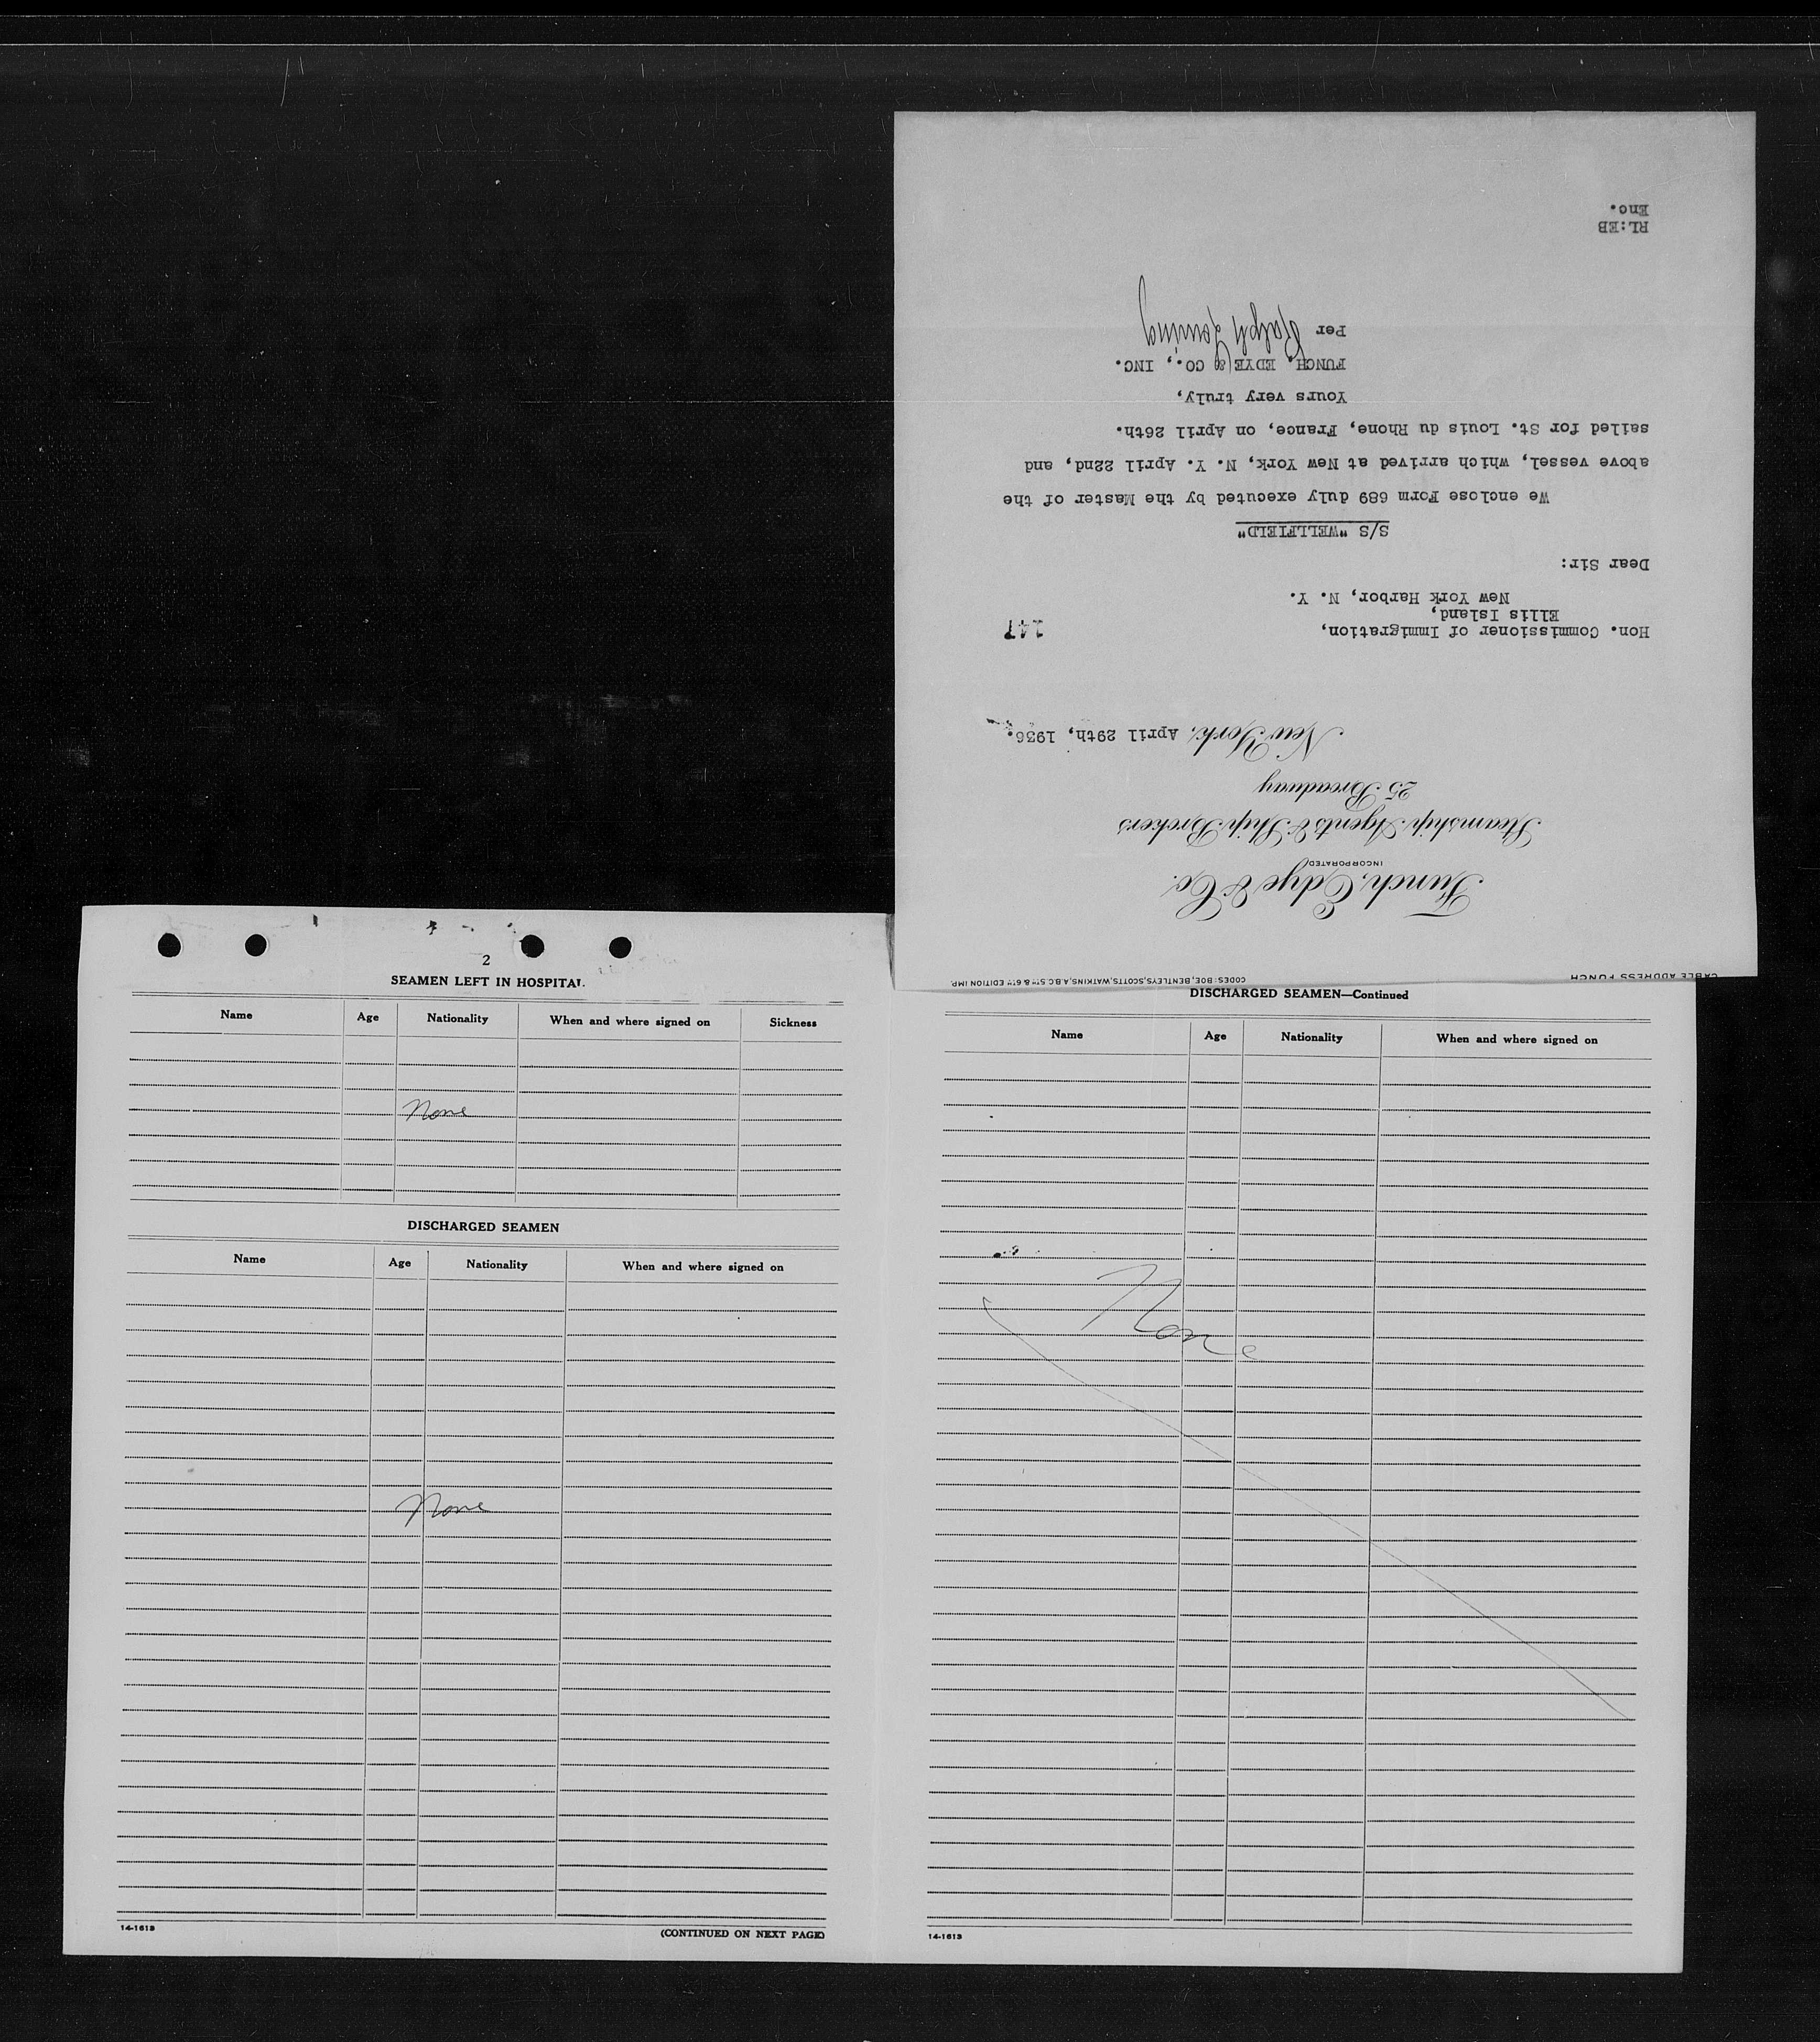 CABLE ADDRESS FUNCH
CODES: BOE, BENTLEYS, SCOTTS, WATKINS, A.B.C. 5TH & 6TH EDITION IMP.
Funch, Edye & Co.
INCORPORATED
Steamship Agents & Ship Brokers
25 Broadway
New York, April 29th, 1936.
Hon. Commissioner of Immigration,
Ellis Island,
New York Harbor, N. Y.
147
Dear Sir:
S/S "WELLFIELD"
We enclose Form 689 duly executed by the Master of the
above vessel, which arrived at New York, N. Y. April 22nd, and
sailed for St. Louis du Rhone, France, on April 26th.
Yours very truly,
FUNCH, EDYE & CO., INC.
Per Ralph
RL:EB
Enc.
2
SEAMEN LEFT IN HOSPITAL
Name Age Nationality When and where signed on Sickness
None
DISCHARGED SEAMEN
Name Age Nationality When and where signed on
None
14-1613
(CONTINUED ON NEXT PAGE)
DISCHARGED SEAMEN—Continued
Name Age Nationality When and where signed on
None
14-1613